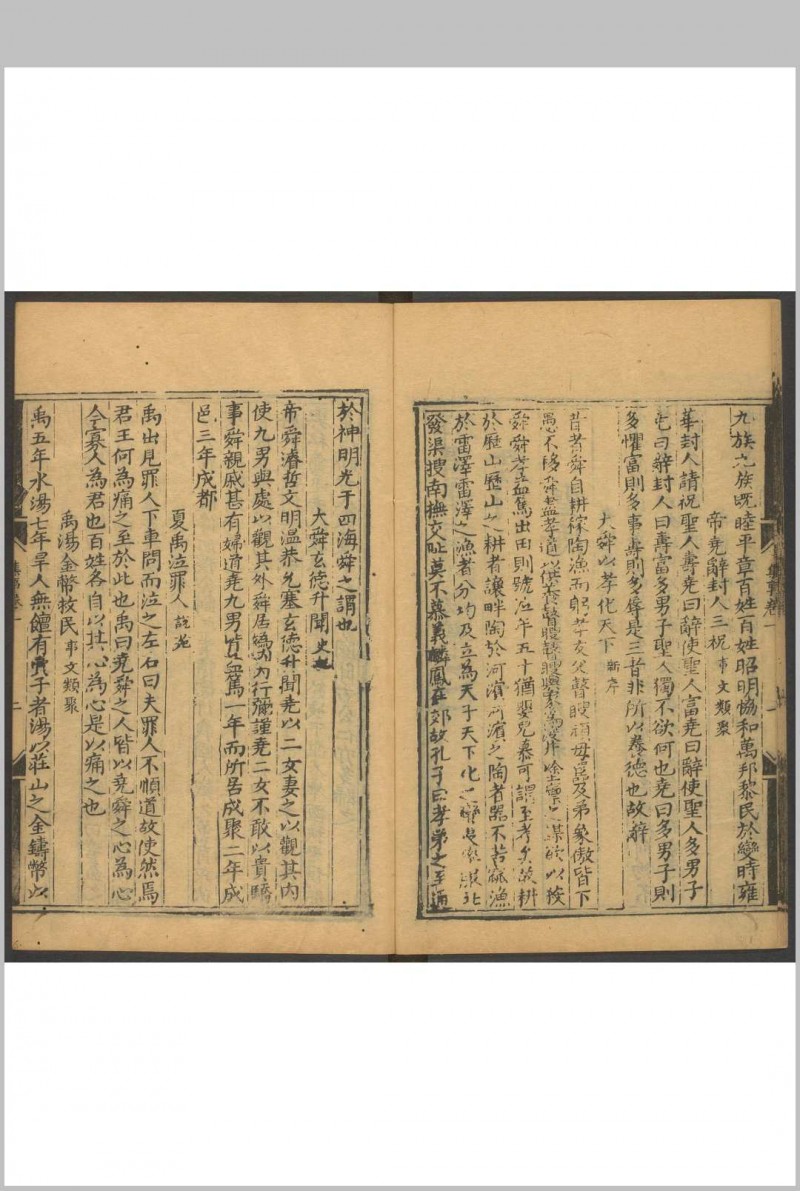 九族九族既睦平章百姓百姓昭明恊和萬邦黎民於變時雍
帝堯辭封人三祝 事文類聚
華封人請祝聖人壽堯曰辭使聖人富堯曰辭使聖人多男子
堯曰辭封人曰壽富多男子聖人獨不欲何也堯曰多男子則
多懼富則多事壽則多辱是三者非所以養德也故辭
大舜以孝化天下 新序
昔者舜自耕稼陶漁而躬孝友父瞽瞍頑母嚚及弟象傲皆下
愚不移舜盡孝道以供養瞽瞍瞽瞍與象為浚井塗廩之謀欲以殺
舜舜孝益篤出田則號泣年五十猶嬰兒慕可謂至孝矣故耕
於歷山歷山之耕者讓畔陶於河濱河濱之陶者器不苦窳漁
於雷澤雷澤之漁者分均及立為天子天下化之 北
發渠搜南撫交阯莫不慕義麟鳳在郊故孔子曰孝弟之至通
於神明光于四海舜之謂也
大舜玄德升聞 史記
帝舜濬哲文明温恭允塞玄德升聞堯以二女妻之以觀其内
使九男與處以觀其外舜居媯汭内行彌謹堯二女不敢以貴驕
事舜親戚甚有婦道堯九男皆益篤一年而所居成聚二年成
邑三年成都
夏禹泣罪人 說苑
禹出見罪人下車問而泣之左右曰夫罪人不順道故使然焉
君王何為痛之至於此也禹曰堯舜之人皆以堯舜之心為心
今寡人為君也百姓各自以其心為心是以痛之也
禹湯金幣救民 事文類聚
禹五年水湯七年旱人無饘有賣子者湯以莊山之金鑄幣以